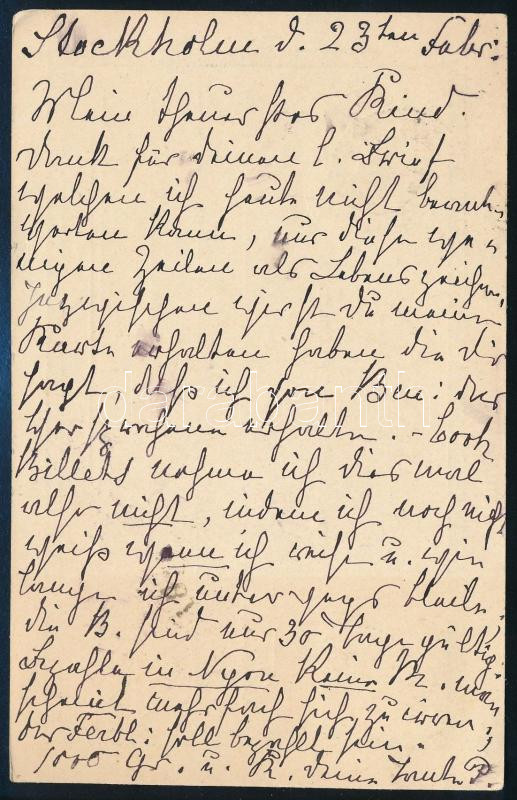 Stockholm d. 23ten Febr:
Mein theuerstes Kind.
Dank für deinen l. Brief
welchen ich heute nicht beant-
worten kann, nur diese we-
nigen Zeilen als Lebenszeichen.
Inzwischen wirst du meine
Karte erhalten haben die dir
sagt, daß ich von Ben: das
erhalten. - Cook
Billets nehme ich dies mal
also nicht, indem ich noch nicht
weiß wann ich reise u. wie
lange ich unterwegs bleibe
die B. sind nur 30 Tage gültig
Bezahle in Nyon keine R. man
scheint mehrfach sich zu irren,
der soll bezahlt sein.
1000 Gr. u. K. deine Tante P.
darabanth